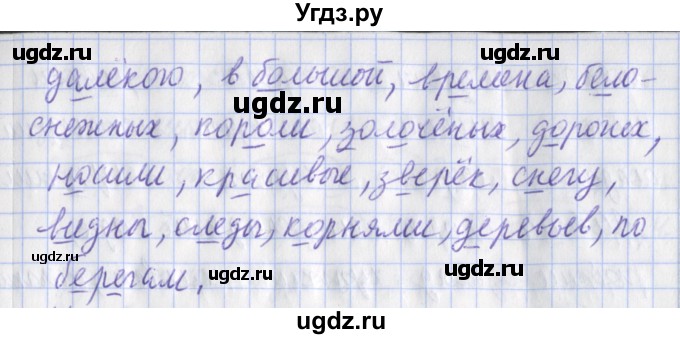 Угдз.ру
ugdz.ru ugdz.ru
далёкою, в большой, времена, бело-
ugdz.ru
снежных, пороли, золочёных, дороних,
носили, красивые, зверёк, снегу,
видны, следы, корнями, деревьев, по
ugdz.ru ugdz.ru
берегам,
ugdz.ru